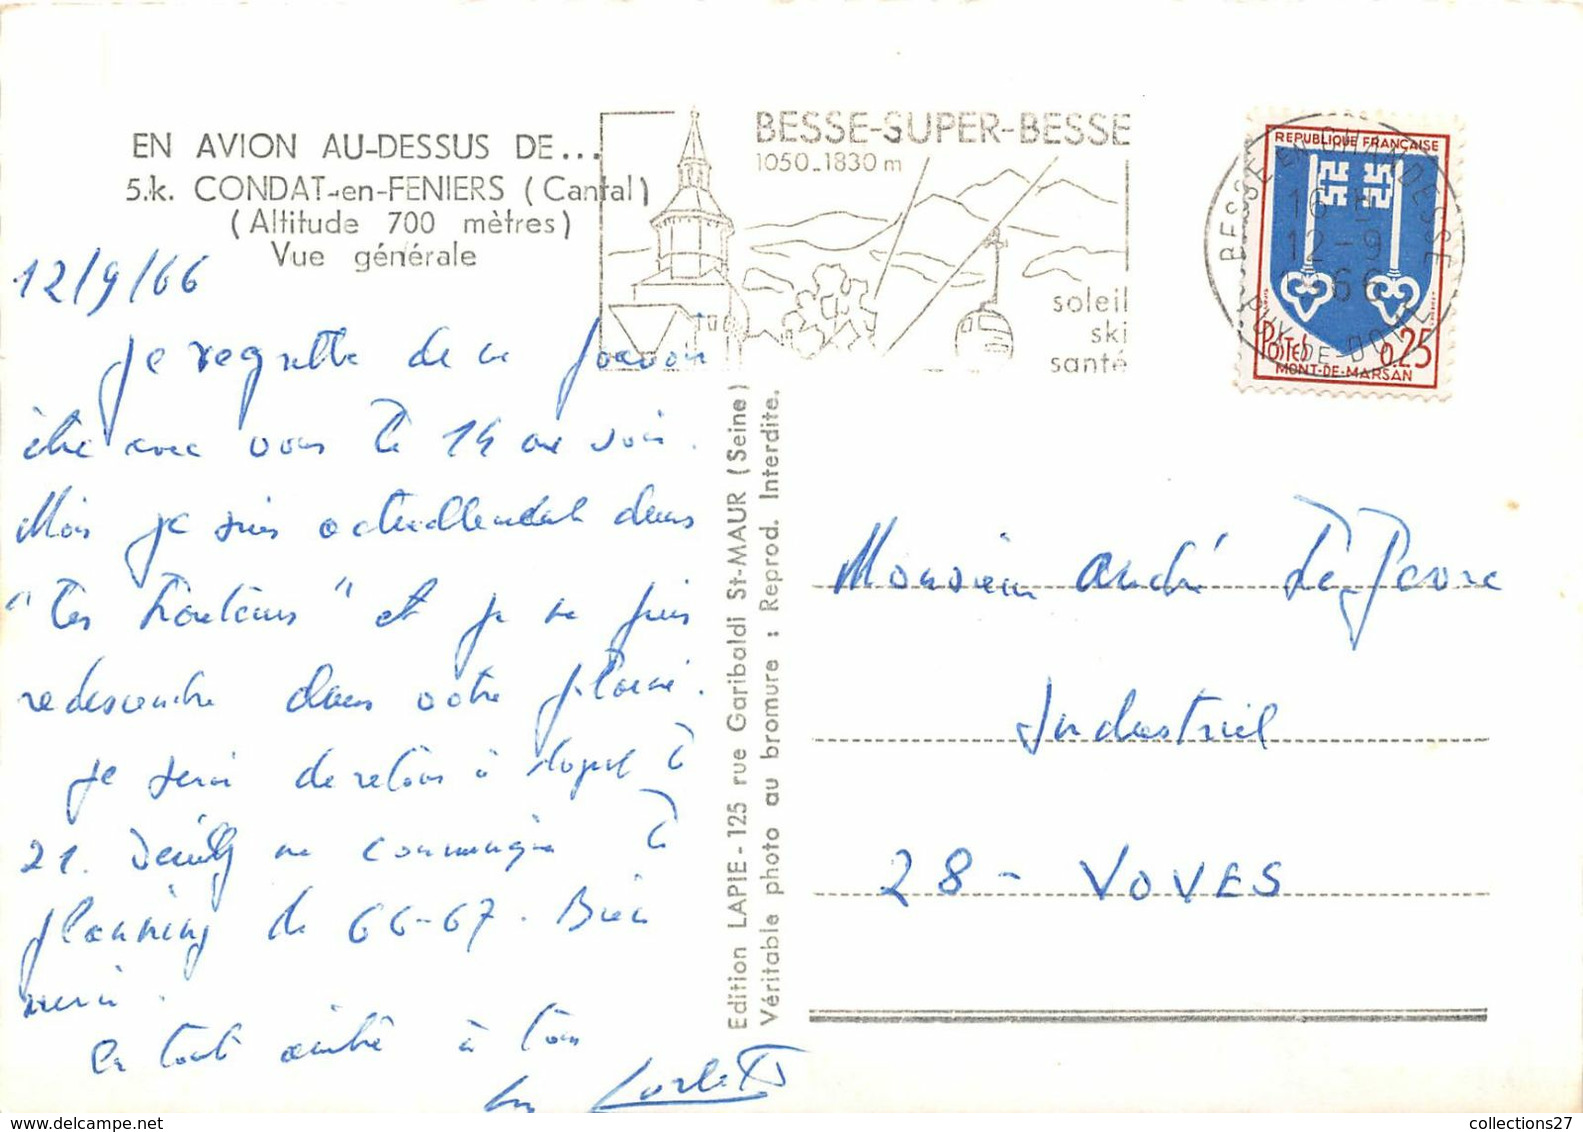 EN AVION AU-DESSUS DE...
5.k. CONDAT-en-FENIERS (Cantal)
(Altitude 700 mètres)
Vue générale
BESSE-SUPER-BESSE
1050-1830 m
soleil
ski
santé
BESSE EN CHANDESSE
16 H
12-9
1966
PUY-DE-DOME
REPUBLIQUE FRANÇAISE
POSTES 0,25
MONT-DE-MARSAN
12/9/66
Je regrette de ne pouvoir
être avec vous le 14 au soir.
Mais je suis actuellement dans
"les hauteurs" et je ne puis
redescendre dans votre plaine.
Je serai de retour à le
21. Veuillez me communiquer le
planning de 66-67. Bien
merci.
en toute amitié à tous
Edition LAPIE - 125 rue Garibaldi St-MAUR (Seine)
Véritable photo au bromure : Reprod. Interdite.
Monsieur André
Industriel
28 - VOVES
collections27